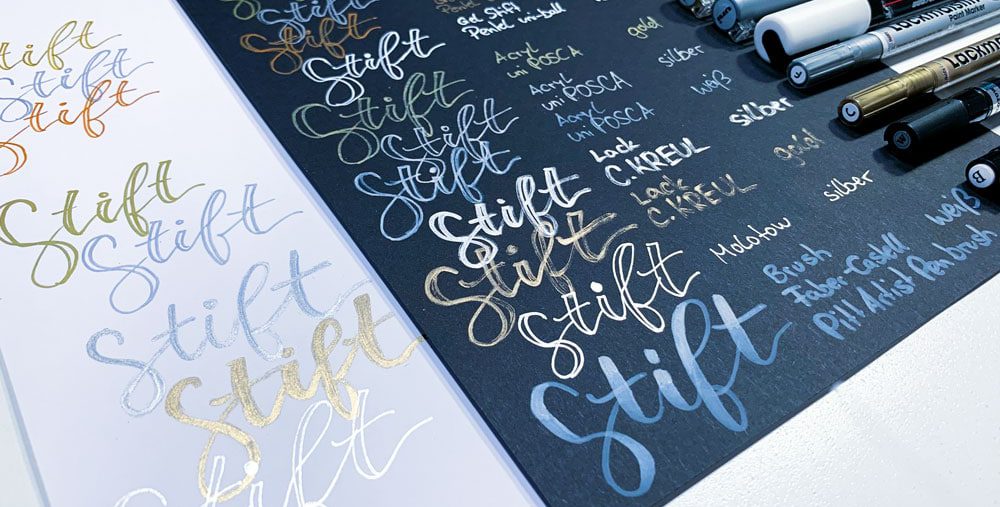 Stift
Stift
Stift
Stift
Stift
Stift
Stift
Stift
Stift
Stift Gel Stift
Pentel uni-ball
Stift Acryl gold
uni POSCA
Stift Acryl silber
uni POSCA
Stift Acryl weiß
uni POSCA
Stift Lack silber
C.KREUL
Stift Lack gold
C.KREUL
Stift Molotow silber
Stift Brush weiß
Faber-Castell
Pitt Artist Pen brush
Paint Marker
B